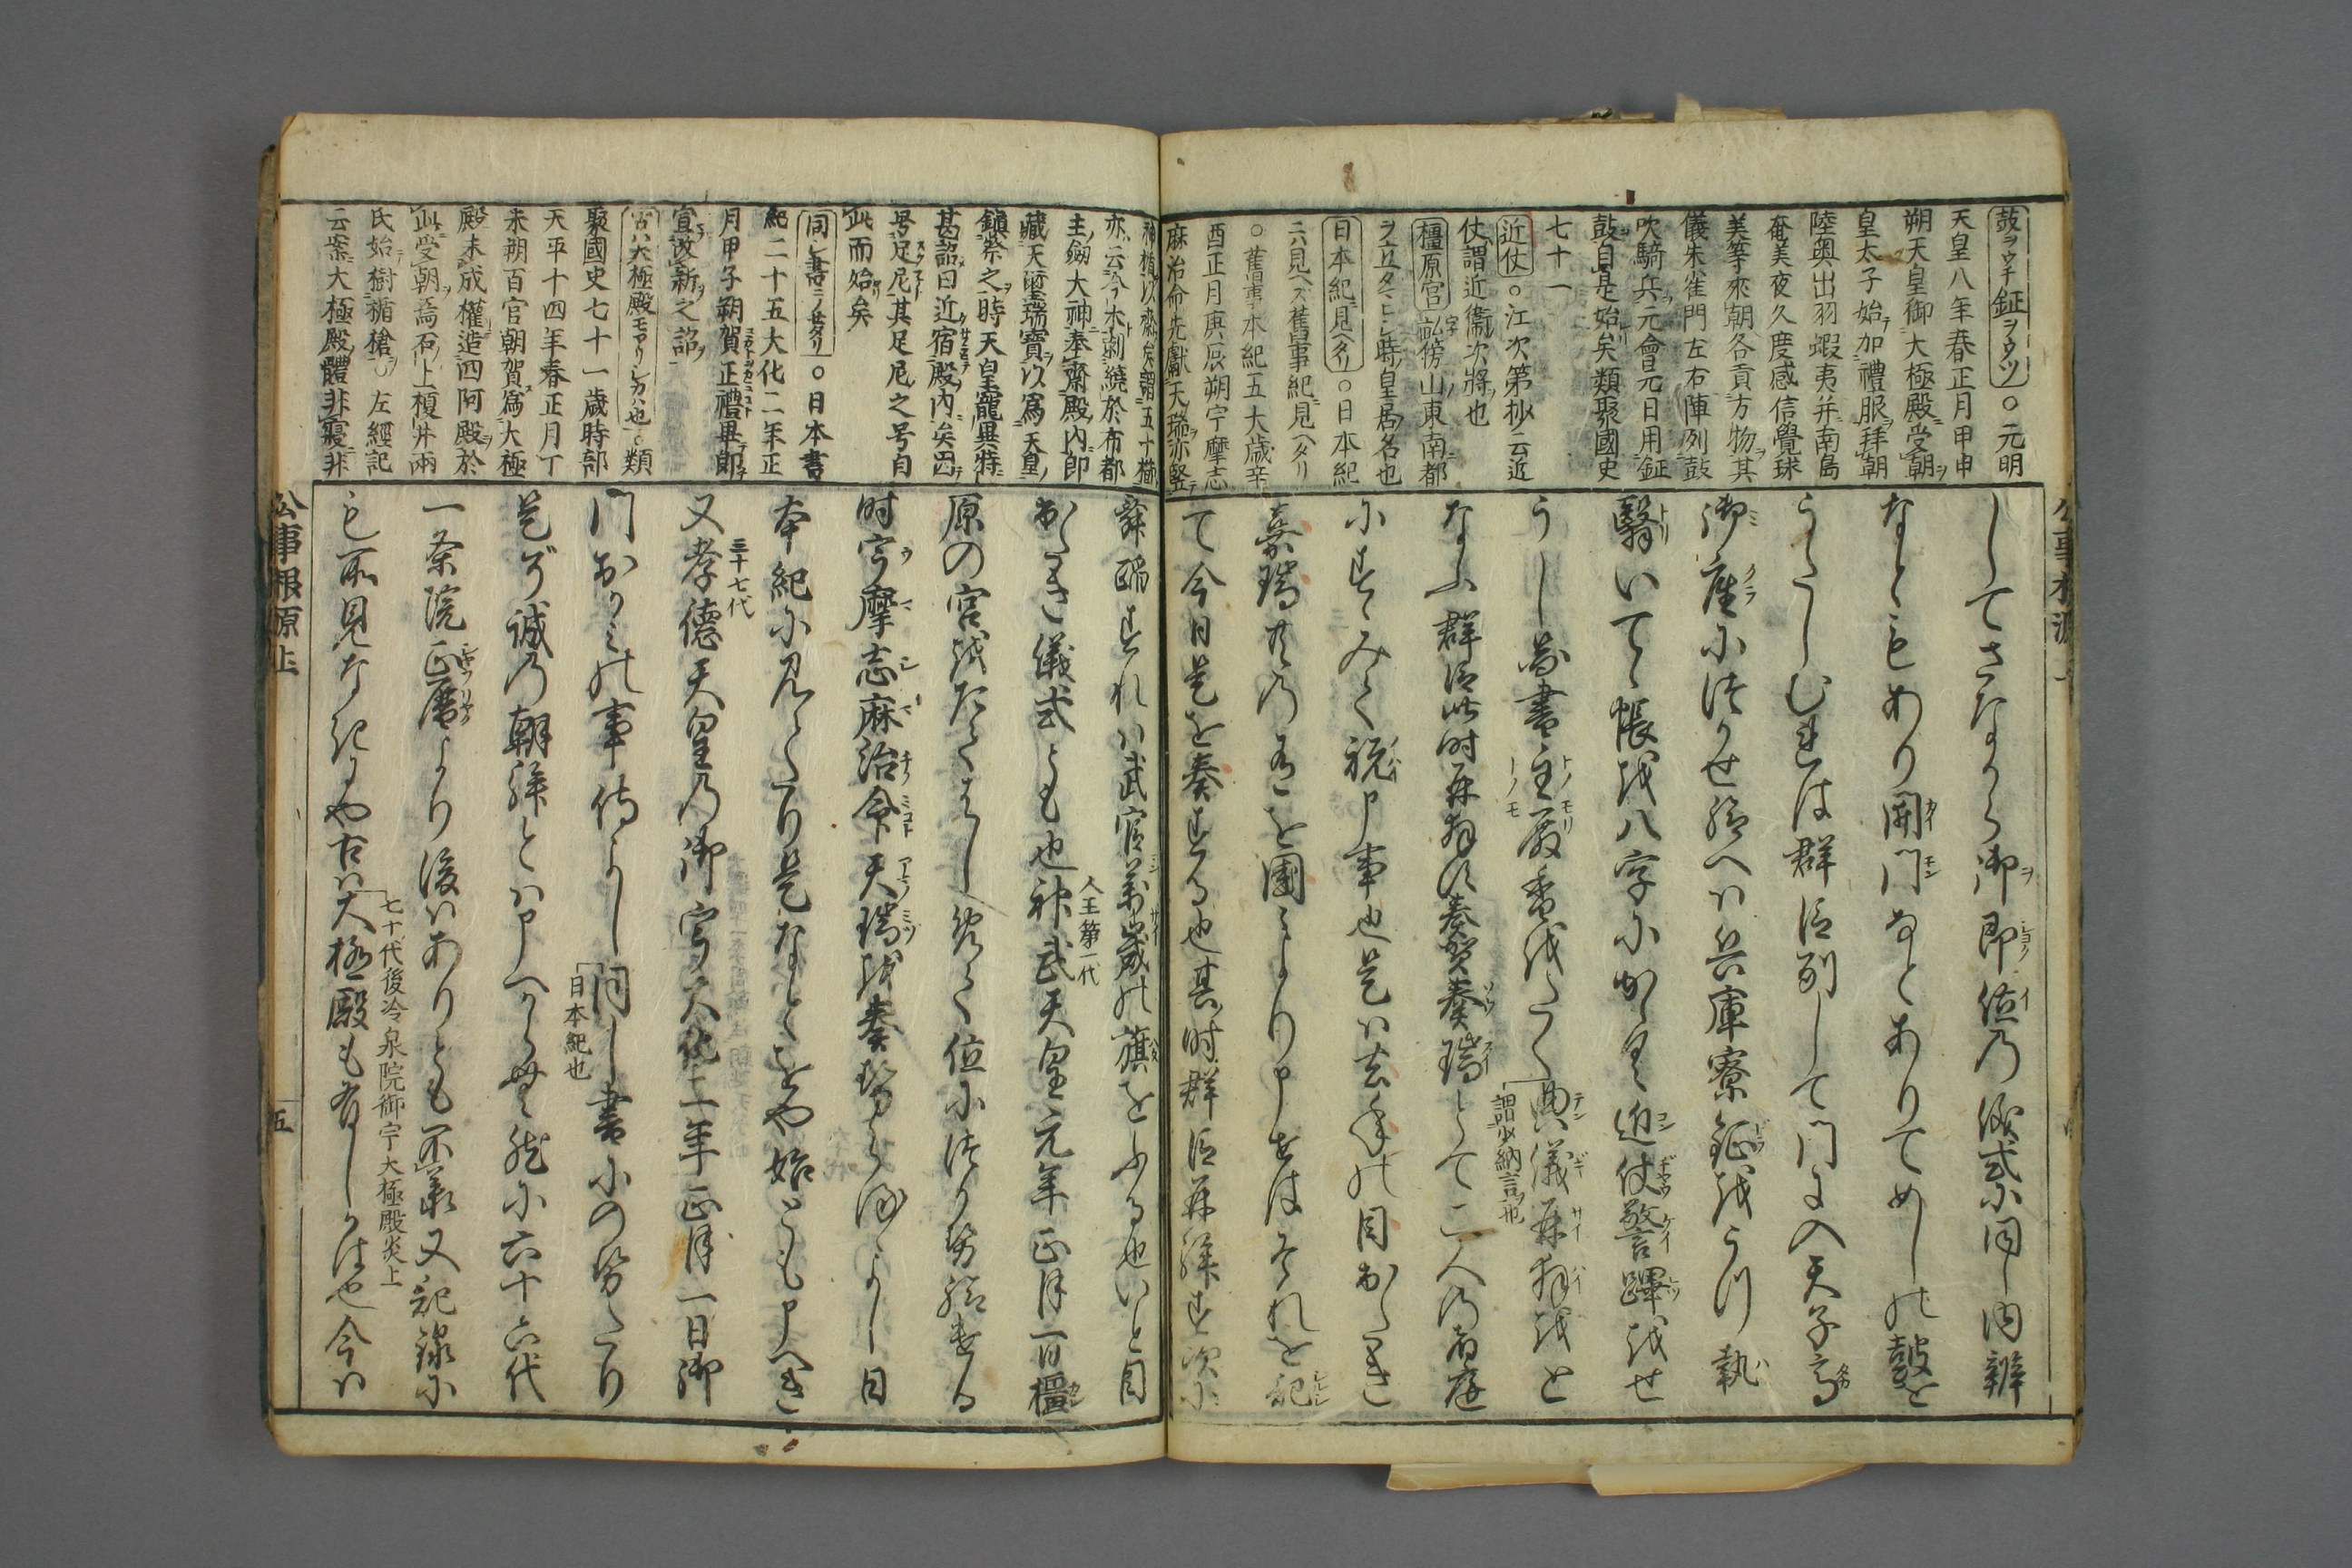 鼓ヲウチ鉦ヲウツ○元明
天皇八年春正月甲申
朔天皇御大極殿受朝
皇太子始加禮服拜朝
陸奥出羽蝦夷并南島
奄美夜久度感信覺球
美等來朝各貢方物其
儀朱雀門左右陣列鼓
吹騎兵元會元日用鉦
鼓自是始矣類聚國史
七十一
近仗○江次第抄云近
仗謂近衞次將也
橿原宮畝傍山東南都
ヲ立タマヒシ時皇居名也
日本紀見ヘタリ○日本紀
ニハ見ヘズ舊事紀ニ見ヘタリ
○舊事本紀五大歳辛
酉正月庚辰朔宇摩志
麻治命先獻天瑞亦竪
してさなから御即位の儀式に同し内辨
なともあり開門なとありてめしの鼓を
うたしむれは群臣列して門に入天子高
御座につかせ給へハ兵庫寮鉦をうつ執
翳いてゝ帳を八字にかゝく近仗警蹕をせ
うし圖書主殿香をたく典儀再拜をと
謂少納言也
なふ群臣此時再拜次奏賀奏瑞とて二人の者庭
にすゝみて祝申事也是ハ去年の目出たき
嘉瑞共の有を國より申せはそれを記
て今日是を奏する也其時群臣再拜す次に
神楯以齋矣謂五十櫛
亦云今木刺繞於布都
主劔大神奉齋殿内即
藏天璽瑞寶以爲天皇
鎮祭之時天皇寵異特
甚詔曰近宿殿内矣因
号足尼其足尼之号自
此而始矣
同シ書ニノセタリ○日本書
紀二十五大化二年正
月甲子朔賀正禮畢即
宣改新之詔
古ハ大極殿モアリシカハ也○類
聚國史七十一歳時部
天平十四年春正月丁
未朔百官朝賀爲大極
殿未成權造四阿殿於
此受朝焉石上榎井兩
氏始樹楯槍○左經記
云案大極殿體非寢非
舞踏すれハ武官萬歳の旗をふる也いと目
出たき儀式とも也神武天皇元年正月一日橿
人王第一代
原の宮をたてはしめて位につかせ給ける
時宇摩志麻治命天瑞を奏せらるよし日
本紀に見えたり是なとをや始とも申へき
又孝德天皇の御宇大化二年正月一日御
三十七代
門おかみの事侍よし同し書にのせたり
日本紀也
是ぞ誠の朝拜とハ申へからむ然に六十六代
一条院正暦より後ハありとも不㒵又記録に
も所見なきにや古ハ大極殿も有しかは也今ハ
七十代後冷泉院御宇大極殿炎上
公事根源上
五